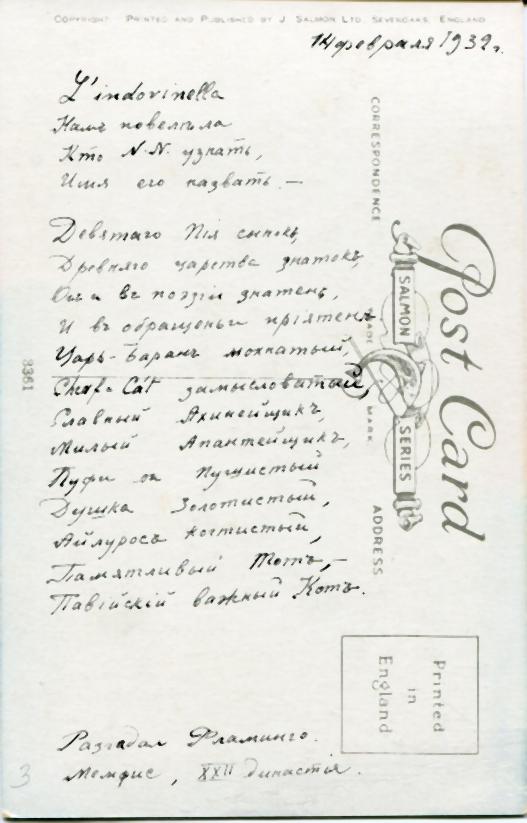 COPYRIGHT PRINTED AND PUBLISHED BY J SALMON LTD, SEVENOAKS, ENGLAND
14 февраля 1932 г.
L'indovinella
Намъ повелѣла
Кто N.N. узнать,
Имя его назвать. —
Девятаго Пія сынокъ,
Древняго царства знатокъ,
Онъ и въ поэзіи знатенъ,
И въ обращеньи пріятенъ
Царь-Баранъ мохнатый,
Chef-Cat замысловатый,
Главный Ахинейщикъ,
Милый Апантейщикъ,
Пуфи он Пушистый
Душка Золотистый,
Айлуросъ когтистый,
Памятливый Тотъ, —
Павійскій важный Котъ.
Разгадал Фламинго.
Мемфис, XXII династія.
3
3361
CORRESPONDENCE
Post Card
SALMON
SERIES
TRADE
MARK
ADDRESS
Printed
in
England